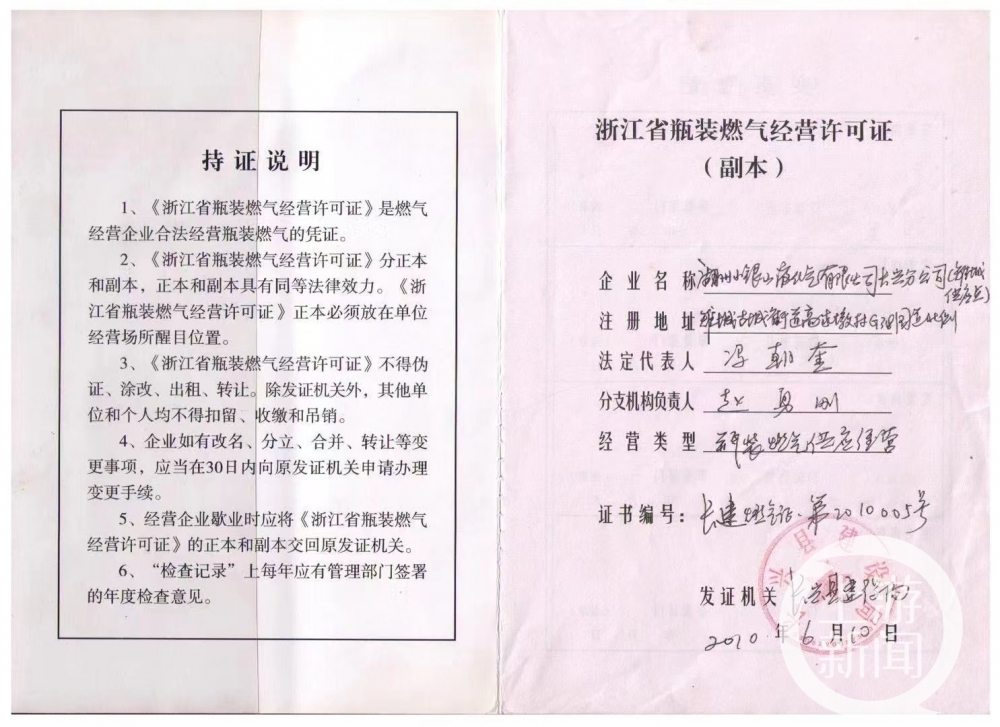 持证说明
1、《浙江省瓶装燃气经营许可证》是燃气
经营企业合法经营瓶装燃气的凭证。
2、《浙江省瓶装燃气经营许可证》分正本
和副本，正本和副本具有同等法律效力。《浙
江省瓶装燃气经营许可证》正本必须放在单位
经营场所醒目位置。
3、《浙江省瓶装燃气经营许可证》不得伪
证、涂改、出租、转让。除发证机关外，其他单
位和个人均不得扣留、收缴和吊销。
4、企业如有改名、分立、合并、转让等变
更事项，应当在30日内向原发证机关申请办理
变更手续。
5、经营企业歇业时应将《浙江省瓶装燃气
经营许可证》的正本和副本交回原发证机关。
6、“检查记录”上每年应有管理部门签署
的年度检查意见。
浙江省瓶装燃气经营许可证
（副本）
企业名称 湖州小银山液化气有限公司长兴分公司(
供应点)
注册地址 雉城古城街道高速
法定代表人 冯朝奎
分支机构负责人 赵勇刚
经营类型 瓶装燃气供应经营
证书编号：长建燃气证·第2010005号
发证机关 长兴县建设局
2010年6月10日
兴县建设局
上游新闻